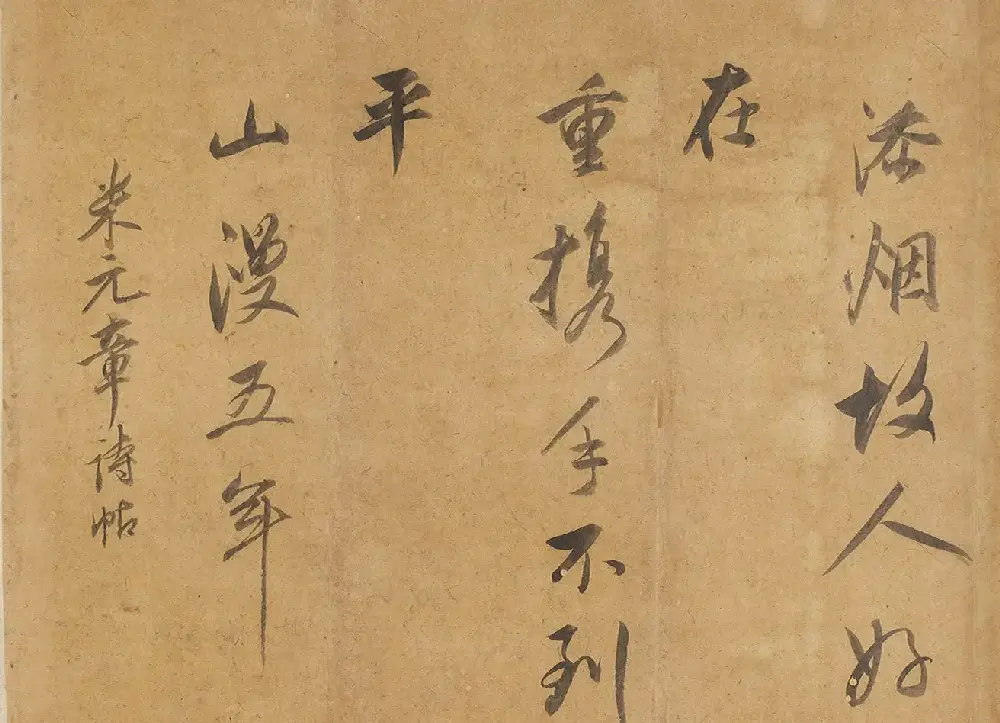 添烟故人好
在
重携手不到
平
山漫五年
米元章诗帖